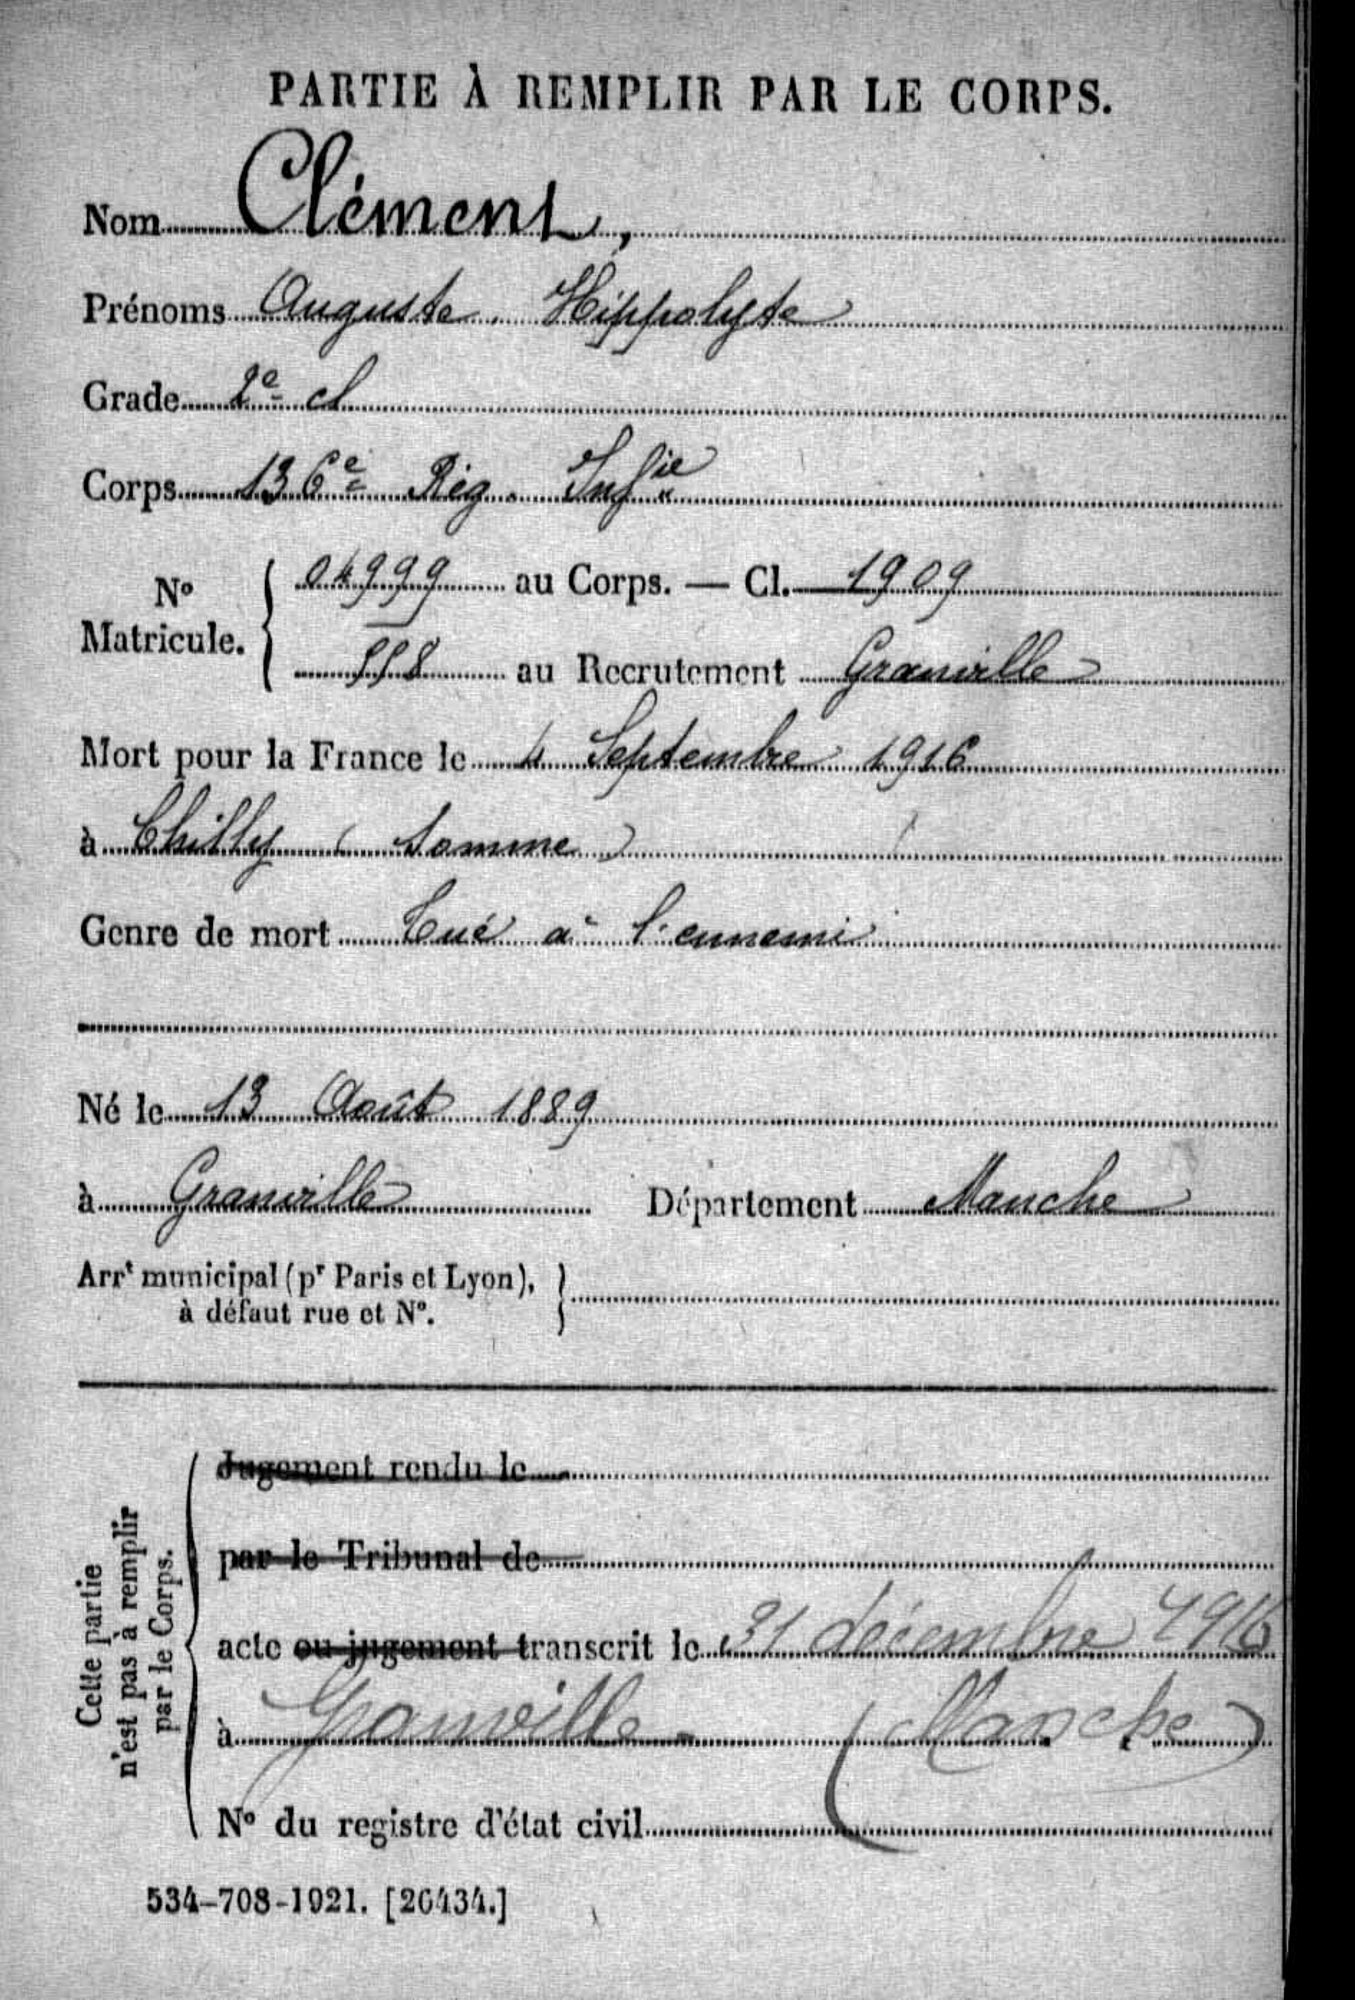 PARTIE À REMPLIR PAR LE CORPS.
Nom Clément,
Prénoms Auguste. Hippolyte
Grade 2e cl
Corps 136e Rég. Infie
No Matricule. { 04999 au Corps. — Cl. 1909
558 au Recrutement Granville
Mort pour la France le 4 Septembre 1916
à Chilly (Somme)
Genre de mort Tué à l'ennemi
Né le 13 Août 1889
à Granville Département Manche
Arrt municipal (pr Paris et Lyon), }
à défaut rue et No.
Cette partie
n'est pas à remplir
par le Corps.
Jugement rendu le
par le Tribunal de
acte ou jugement transcrit le 31 décembre 1916
à Granville - (Manche)
No du registre d'état civil
534-708-1921. [26434.]